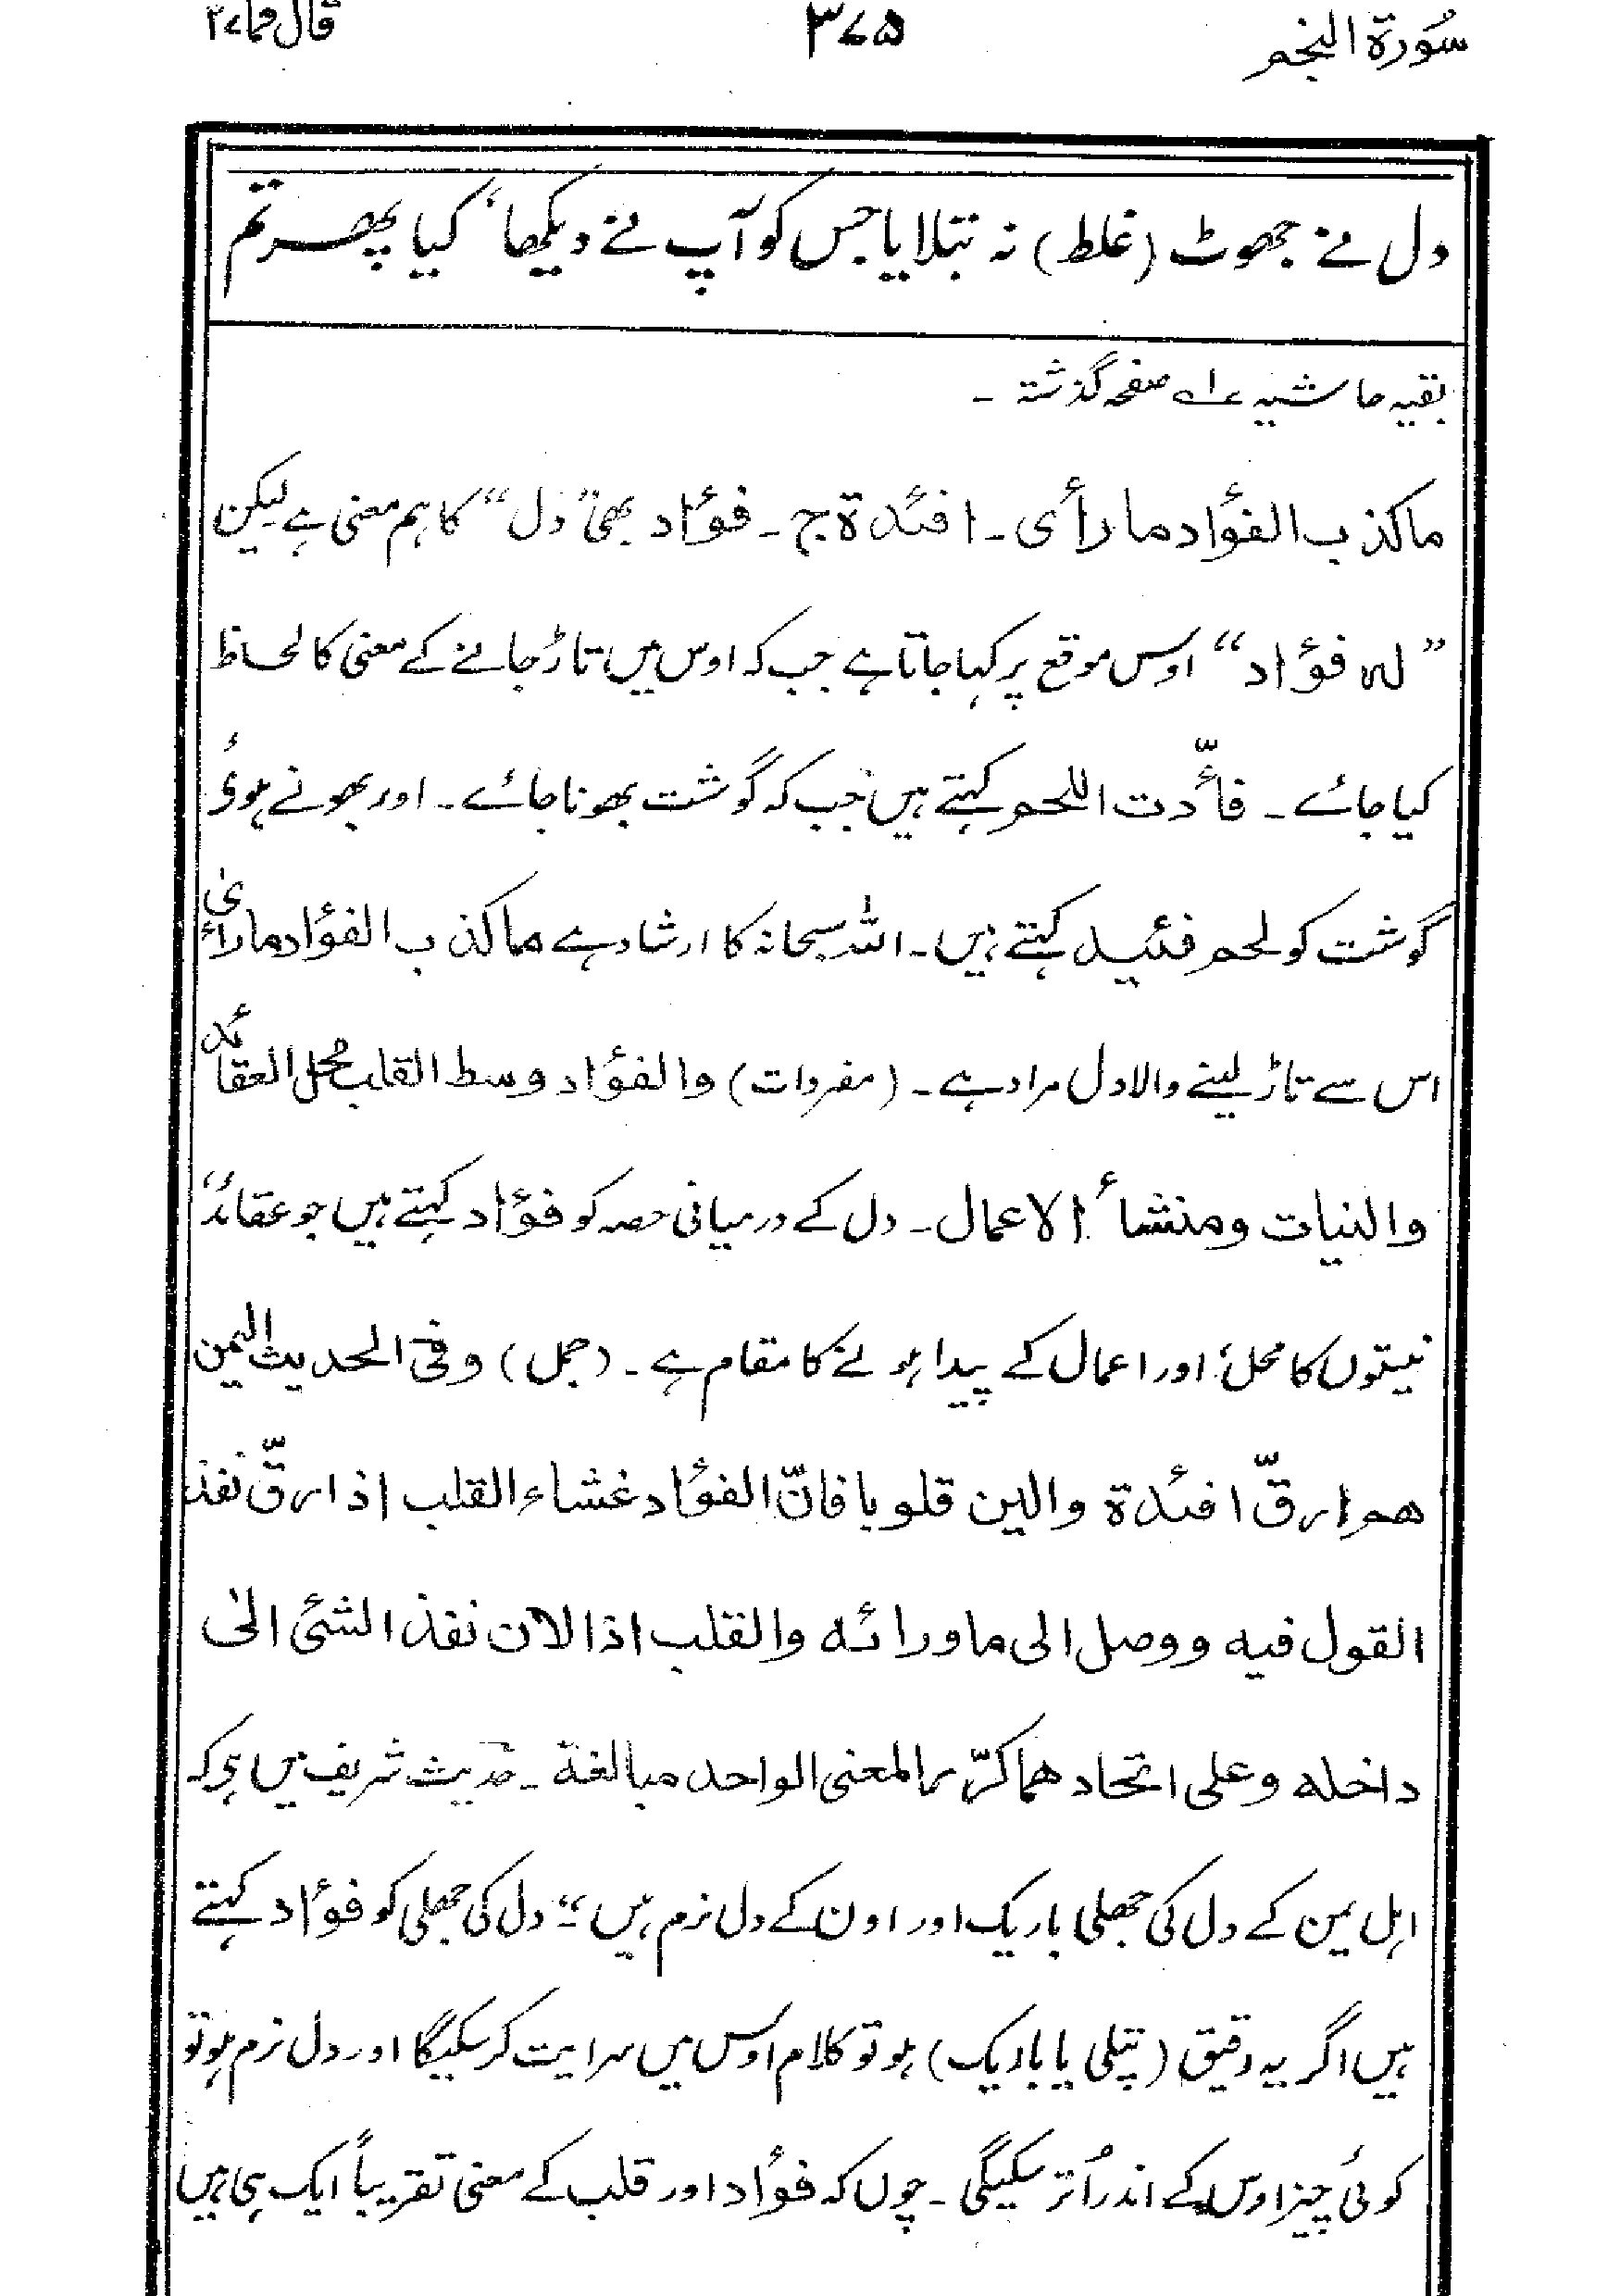 سُورۃ النجم ۳۷۵ قال فما ۲۷
دل نے جھوٹ (غلط) نہ بتلایا جس کو آپ نے دیکھا، کیا پھر تم
بقیہ حاشیہ ۱؎ صفحہ گذشتہ ۔
ماکذب الفؤاد ما رأی ۔ افئدۃ ج ۔ فؤاد بھی ”دل“ کا ہم معنی ہے لیکن
”لہ فؤاد“ اوس موقع پر کہا جاتا ہے جب کہ اوس میں تاڑ جانے کے معنی کا لحاظ
کیا جائے ۔ فأّدت اللحم کہتے ہیں جب کہ گوشت بھونا جائے ۔ اور بھونے ہوئ
گوشت کو لحم فئید کہتے ہیں ۔ اللہ سبحانہ کا ارشاد ہے ماکذب الفؤاد ما رأیٰ
اس سے تاڑ لینے والا دل مراد ہے ۔ (مفردات) والفؤاد وسط القلب محل العقائد
والنیات ومنشأ الاعمال ۔ دل کے درمیانی حصہ کو فؤاد کہتے ہیں جو عقائد،
نیتوں کا محل، اور اعمال کے پیدا ہونے کا مقام ہے ۔ (جمل) وفی الحدیث الیمن
ھم ارقّ افئدۃ والین قلوبا فانّ الفؤاد غشاء القلب اذا رقّ نفذ
القول فیہ ووصل الی ماورائہ والقلب اذا لان نفذ الشئ الیٰ
داخلہ وعلی اتحادھما کرّر المعنی الواحد مبالغۃ ۔ حدیث شریف میں ہی کہ
اہل یمن کے دل کی جھلی باریک اور اون کے دل نرم ہیں“ دل کی جھلی کو فؤاد کہتے
ہیں اگر یہ رقیق (پتلی یا باریک) ہو تو کلام اوس میں سرایت کر سکیگا اور دل نرم ہو تو
کوئی چیز اوس کے اندر اُتر سکیگی ۔ چوں کہ فؤاد اور قلب کے معنی تقریباً ایک ہی ہیں